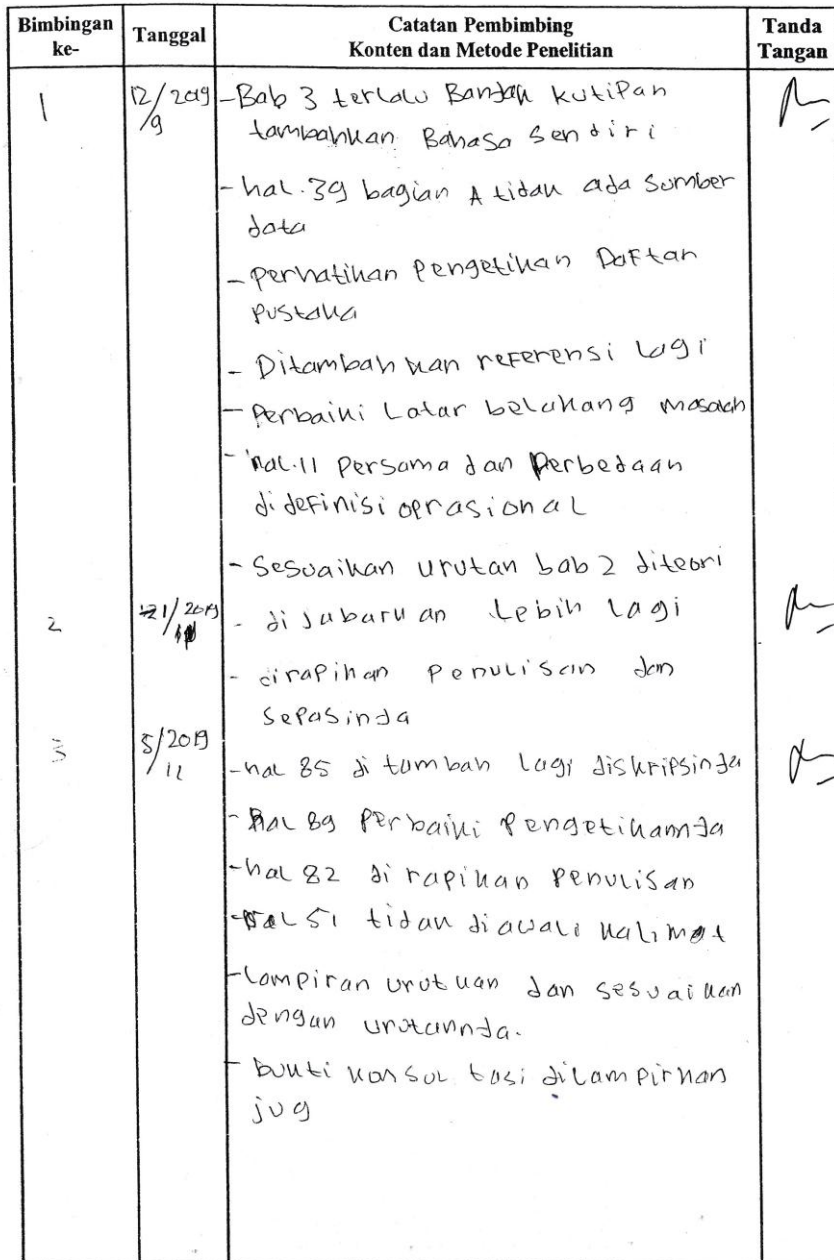 Bimbingan ke-
Tanggal
Catatan Pembimbing
Konten dan Metode Penelitian
Tanda Tangan
1
12/9 2019
- Bab 3 terlalu Banyak kutipan
tambahkan Bahasa Sendiri
- hal. 39 bagian A tidak ada Sumber
data
- Perhatikan Pengetikan Daftar
Pustaka
- Ditambah kan referensi lagi
- Perbaiki Latar belakang masalah
- hal. 11 Persama dan Perbedaan
di definisi oprasional
- Sesuaikan urutan bab 2 diteori
2
- di Jabarkan Lebih lagi
- dirapihan Penulisan dan
Sepasinya
3
5/11 2019
- hal 85 di tambah lagi diskripsinya
- hal 89 Perbaiki Pengetikannya
- hal 82 di rapikan Penulisan
- hal 51 tidak diawali kalimat
- Lampiran urutkan dan sesuaikan
dengan urutannya.
- bukti konsultasi dilampirkan
jug